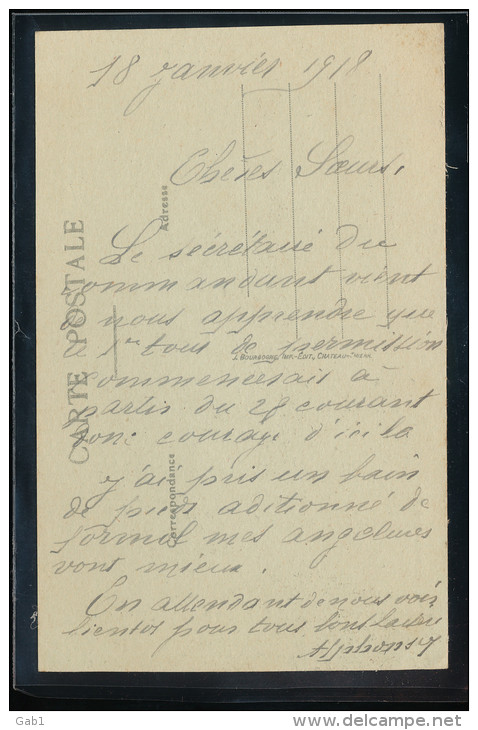 18 Janvier 1918
Chères Sœurs,
Le secrétaire du
commandant vient
de nous apprendre que
le 1er tour de permission
commencerait à
partir du 28 courant
donc courage d'ici la
J'ai pris un bain
de pieds aditionné de
formol mes angelures
vont mieux.
En attendant de vous voir
bientot pour tous bons baisers
CARTE POSTALE
Adresse
Correspondance
J. BOURGOGNE, IMP.-EDIT., CHATEAU-THIERRY
Gab1